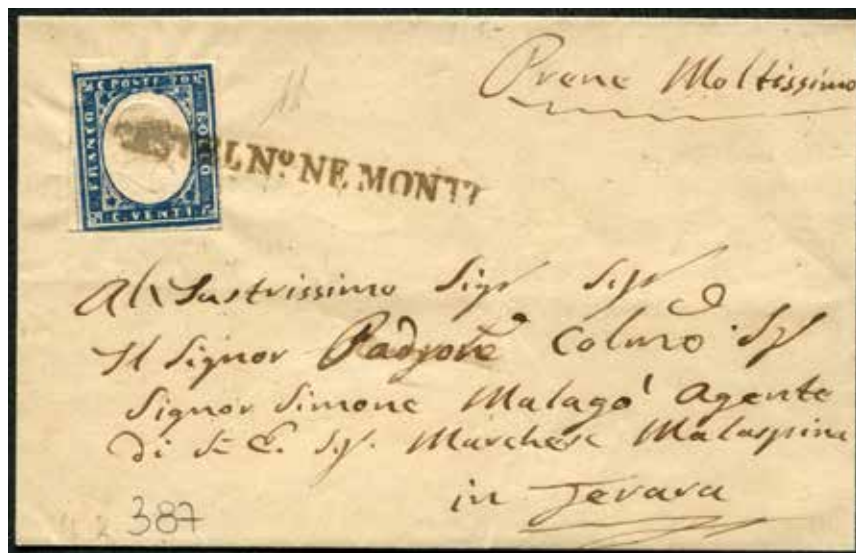 Preme Moltissimo
FRANCO
C. POSTE
BOLLO
C. VENTI
CASTELNº. NE MONTI
All Lustrissimo Sigr Sigr
Il Signor Padrone Colmo Sigr
Signor Simone Malagò Agente
di S. E. Sigr. Marchese Malaspina
in Ferara
387